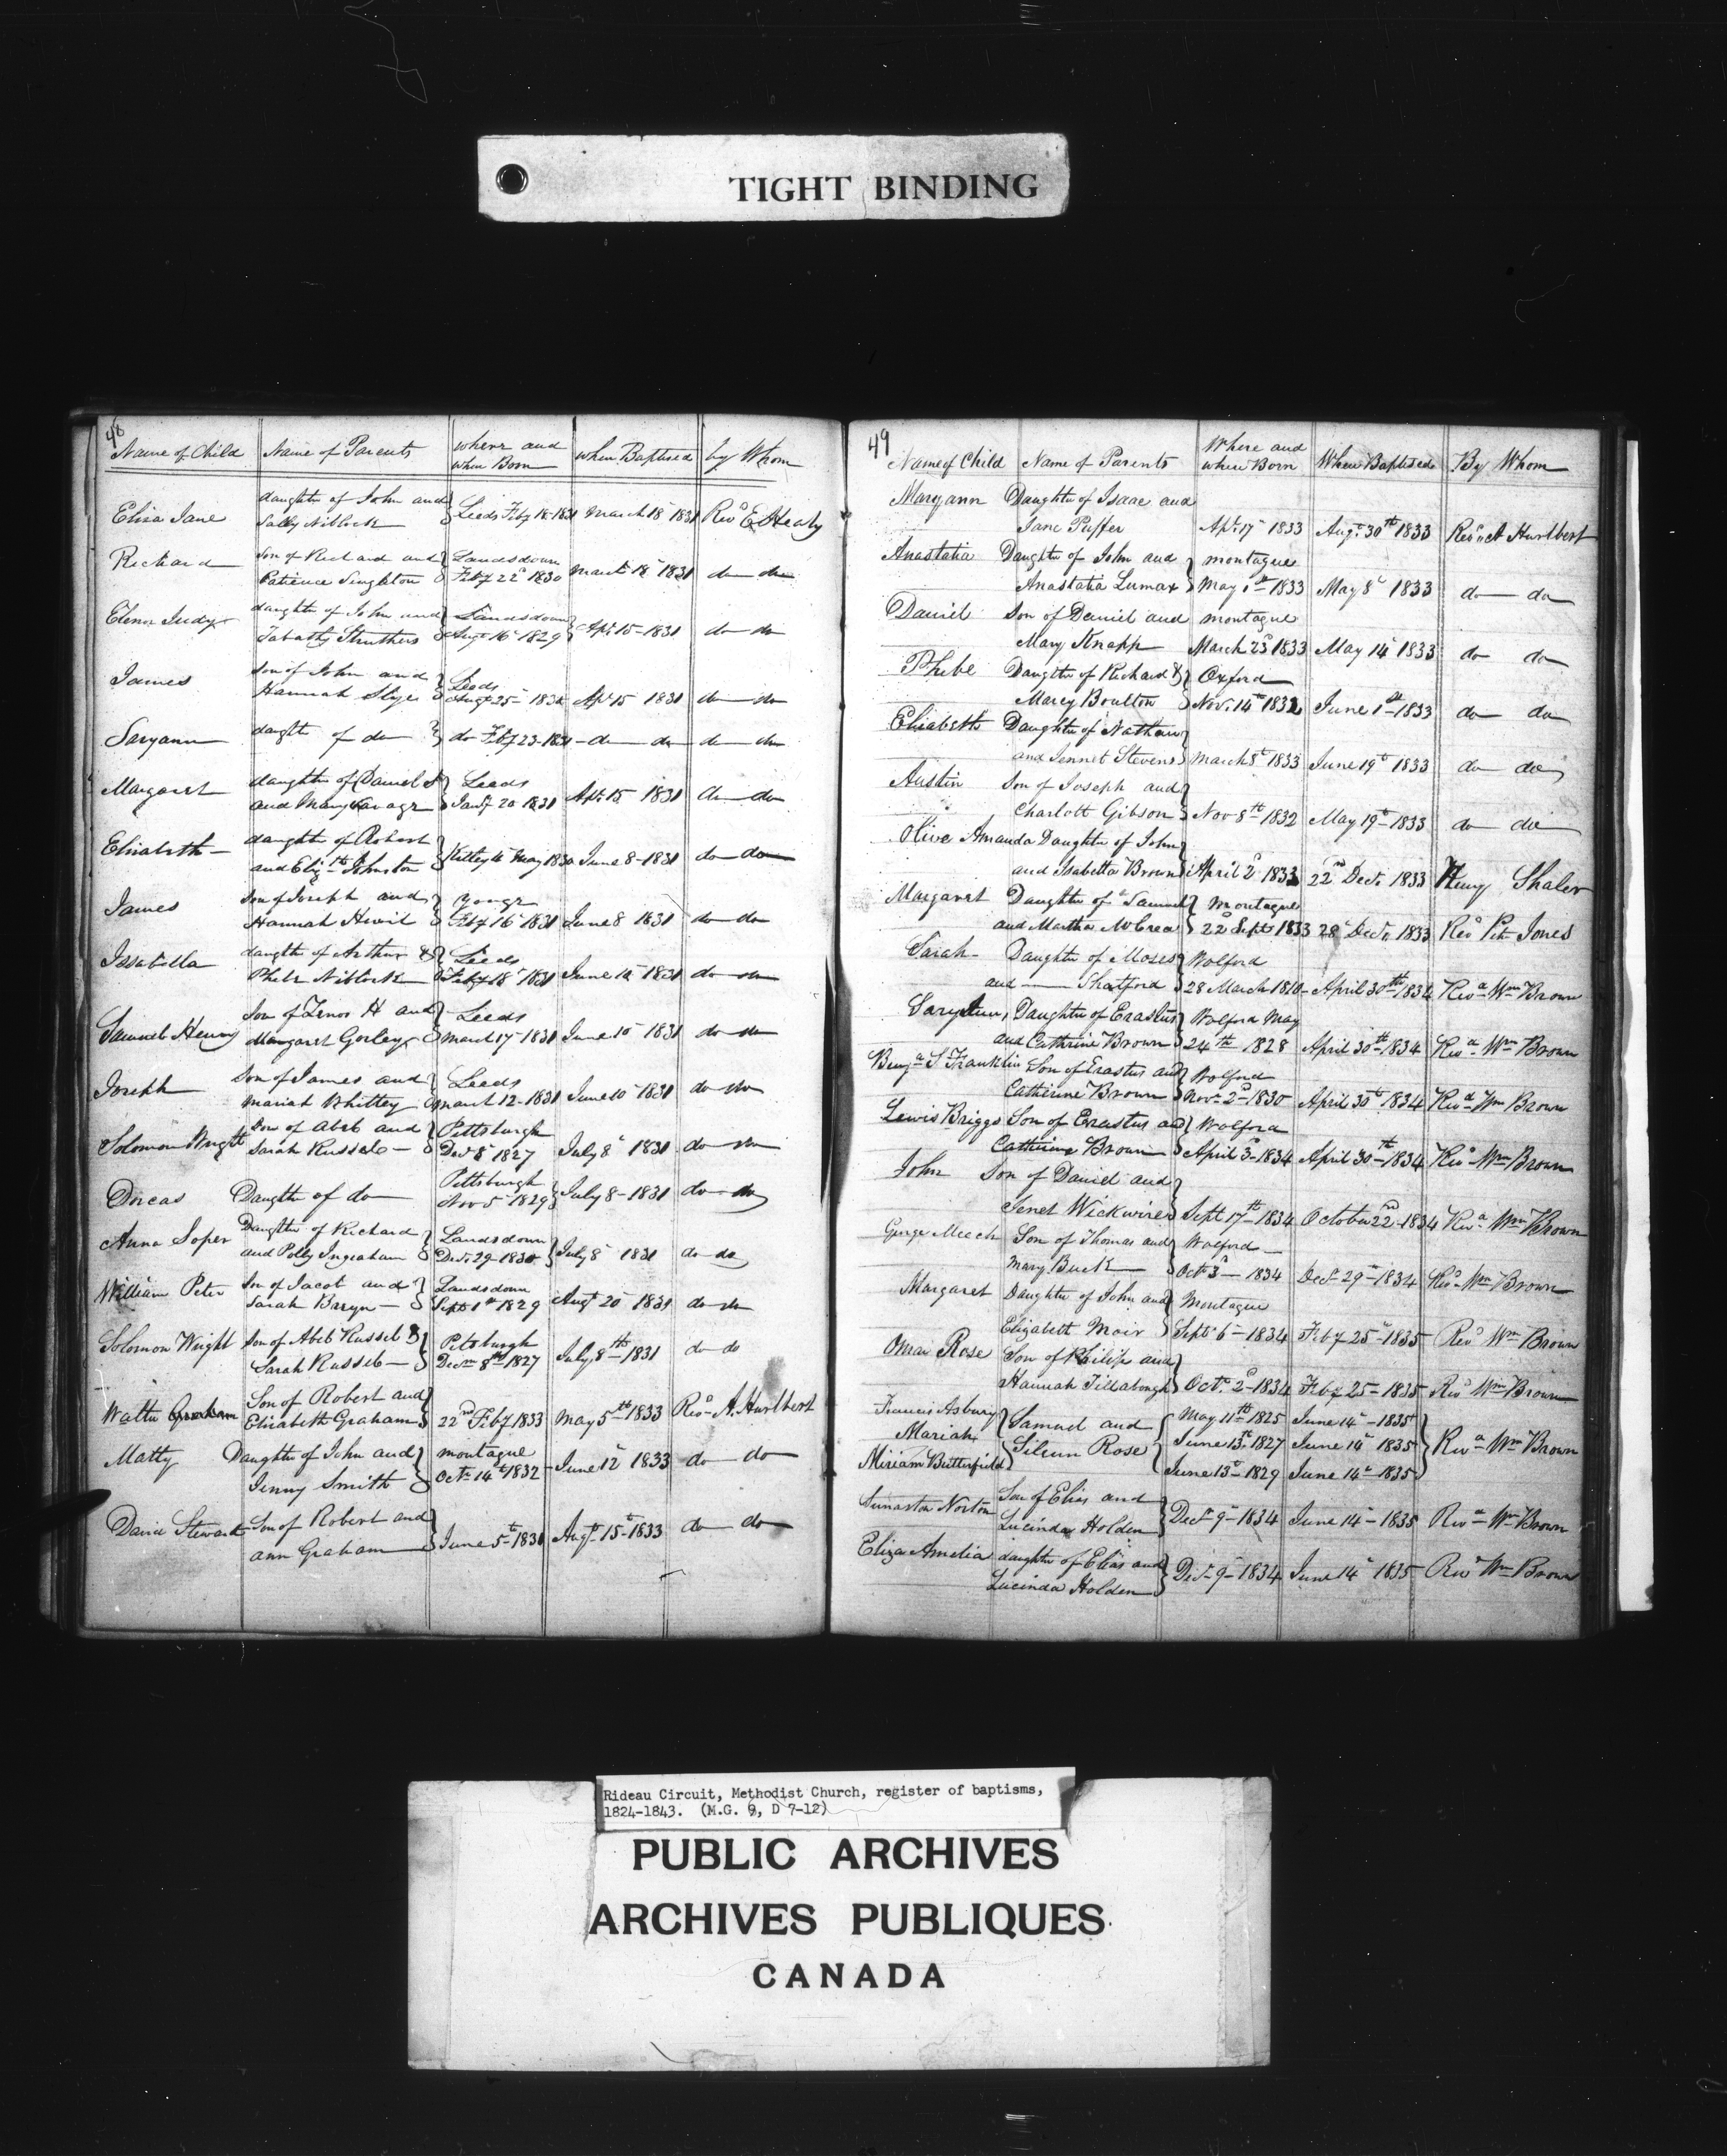 TIGHT BINDING
48
Name of Child Name of Parents where and when Born when Baptised by Whom
Eliza Jane daughter of John and Sally Niblock Leeds Feby 18-1831 March 18 1831 Revd E Healy
Richard Son of Richard and Patience Singleton Landsdown Feby 22d 1830 March 18 1831 do do
Elenor Judy daughter of John and Tabathy Struthers Landsdown Augt 16 1829 Apl 15-1831 do do
James Son of John and Hannah Leeds Augt 25 Apl 15 1831 do do
Saryann daught of do do Feby 23-1831 do do do do
Margaret daughter of Daniel and Mary Leeds Jany 20 1831 Apl 15 1831 do do
Elisabeth daughter of Robert and Elizth Johnston Kitley May 1830 June 8-1831 do do
James Son of Joseph and Hannah Yonge Feby 16 1831 June 8 1831 do do
Issabella daught of Arthur & Phebe Niblock Leeds Feby 18 1831 June 10 1831 do do
Samuel Henry Son of Zenos H and Margaret Gorley Leeds March 17 1831 June 10 1831 do do
Joseph Son of James and Mariah Whitley Leeds March 12-1831 June 10 1831 do do
Solomon Wright Son of Abib and Sarah Russele Pittsburgh Decr 8 1827 July 8 1831 do do
Dorcas Daughter of do Pittsburgh Nov 5 1829 July 8-1831 do do
Anna Soper Daughter of Richard and Polly Ingraham Landsdown Decr 29-1830 July 8 1831 do do
William Peter Son of Jacob and Sarah Bryn Landsdown Sept 1st 1829 Augt 20 1831 do do
Solomon Wright Son of Abib Russel & Sarah Russel Pittsburgh Decm 8th 1827 July 8th 1831 do do
Walter Graham Son of Robert and Elizabeth Graham 22nd Feby 1833 May 5th 1833 Revd A. Hurlbert
Matty Daughter of John and Jenny Smith montague Oct 14th 1832 June 12 1833 do do
David Steward Son of Robert and ann Graham June 5th 1831 Augt 15th 1833 do do
49
Name of Child Name of Parents Where and when Born When Baptised By Whom
Maryann Daughter of Isaac and Jane Puffer Apl 17 1833 Augt 30th 1833 Revd A Hurlbert
Anastatia Daughter of John and Anastatia Lumax montague May 1st 1833 May 8th 1833 do do
Daniel Son of Daniel and Mary Knapp montague March 23d 1833 May 14 1833 do do
Phebe Daughter of Richard & Marey Boulton Oxford Nov. 14th 1832 June 1st 1833 do do
Elisabeth Daughter of Nathan and Jennet Stevens March 8th 1833 June 19th 1833 do do
Austin Son of Joseph and Charlott Gibson Nov 8th 1832 May 19th 1833 do do
Olive Amanda Daughter of John and Isabella Brown April 2d 1833 22nd Dec. 1833 Heny Shaler
Margaret Daughter of Samuel and Martha McCrea Montague 22d Sept 1833 28 Dec. 1833 Revd Petr Jones
Sarah Daughter of Moses and —— Shatford Wolford 28 March 1810 April 30th 1834 Revd Wm Brown
Saryann, Daughter of Erastus and Cathrine Brown Wolford May 24th 1828 April 30th 1834 Revd Wm Brown
Benjn S Franklin Son of Erastus and Catherine Brown Wolford Nov. 2d 1830 April 30th 1834 Revd Wm Brown
Lewis Briggs Son of Erastus and Catherine Brown Wolford April 3d 1834 April 30th 1834 Revd Wm Brown
John Son of Daniel and Jenet Wickwire Sept 17th 1834 October 22nd 1834 Revd Wm Brown
George Meech Son of Thomas and Mary Buck Wolford Oct 3d 1834 Decr 29th 1834 Revd Wm Brown
Margaret Daughter of John and Elizabeth Moir Montague Sept 6 1834 Feby 25 1835 Revd Wm Brown
Omar Rose Son of Philip and Hannah Octr 2d 1834 Feby 25 1835 Revd Wm Brown
Francis Asbury Samuel and May 11th 1825 June 14 1835
Mariah Rose June 13th 1827 June 14 1835 Revd Wm Brown
Miriam Butterfield June 13th 1829 June 14th 1835
Norton Son of Elias and Lucinda Holden Decr 9 1834 June 14 1835 Revd Wm Brown
Eliza Amelia daughter of Elias and Lucinda Holden Decr 9 1834 June 14 1835 Revd Wm Brown
Rideau Circuit, Methodist Church, register of baptisms,
1824-1843. (M.G. 9, D 7-12)
PUBLIC ARCHIVES
ARCHIVES PUBLIQUES
CANADA